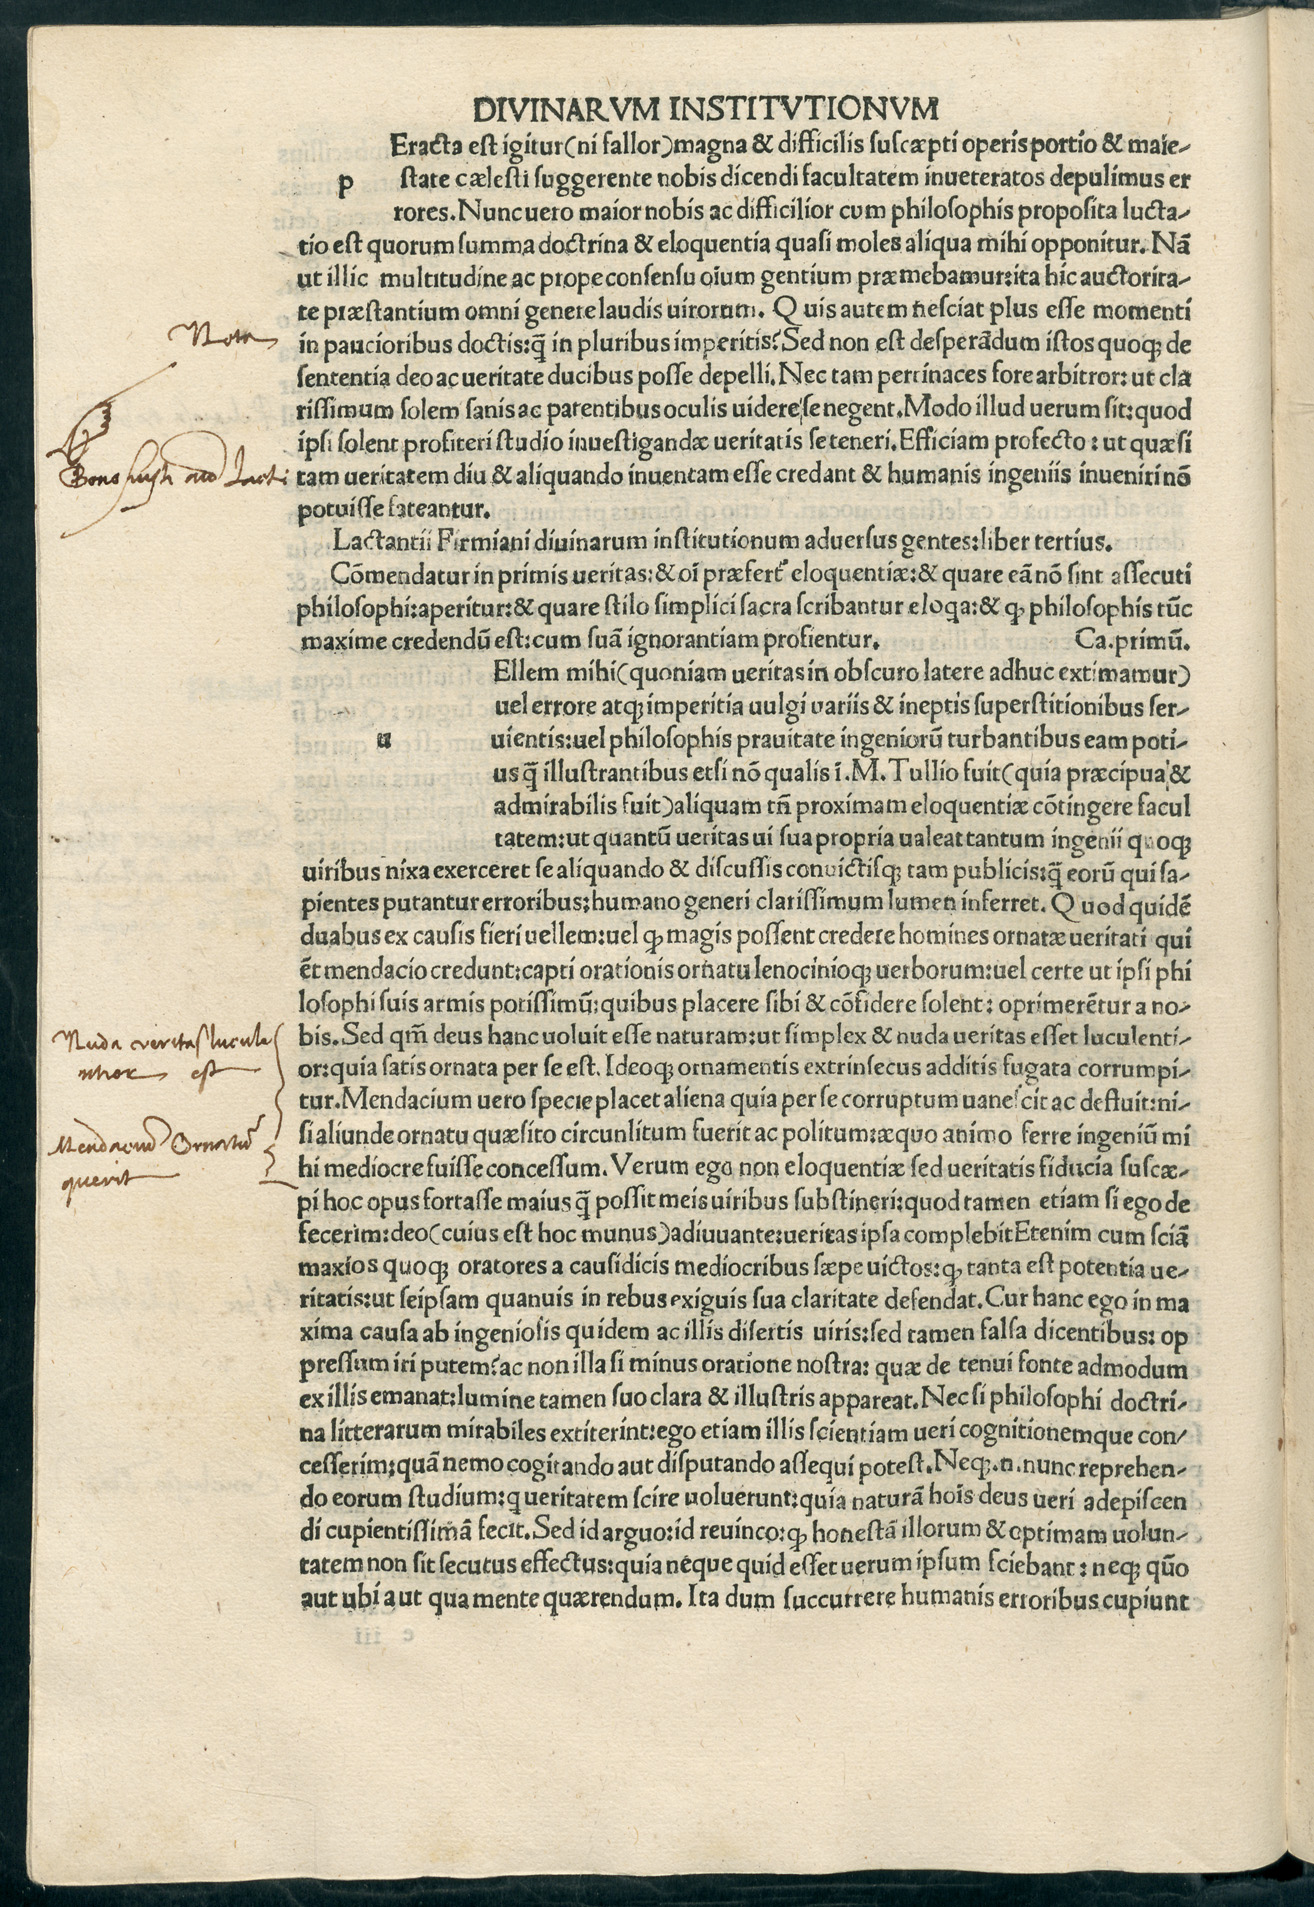 DIVINARVM INSTITVTIONVM
Eracta est igitur(ni fallor)magna & difficilis suscæpti operis portio & maie-
p state cælesti suggerente nobis dicendi facultatem inueteratos depulimus er
rores. Nunc uero maior nobis ac difficilior cum philosophis proposita lucta-
tio est quorum summa doctrina & eloquentia quasi moles aliqua mihi opponitur. Nã
ut illic multitudine ac prope consensu oium gentium præmebamur:ita hic auctorita-
te præstantium omni genere laudis uirorum. Quis autem nesciat plus esse momenti
Nota
in paucioribus doctis:q̃ in pluribus imperitis? Sed non est desperãdum istos quoq; de
sententia deo ac ueritate ducibus posse depelli. Nec tam pertinaces fore arbitror: ut cla
rissimum solem sanis ac patentibus oculis uidere se negent. Modo illud uerum sit: quod
ipsi solent profiteri studio inuestigandæ ueritatis se teneri. Efficiam profecto: ut quæsi
tam ueritatem diu & aliquando inuentam esse credant & humanis ingeniis inueniri nõ
potuisse fateantur.
Lactantii Firmiani diuinarum institutionum aduersus gentes: liber tertius.
Cõmendatur in primis ueritas: & oi præfert̃ eloquentiæ: & quare eã nõ sint assecuti
philosophi: aperitur: & quare stilo simplici sacra scribantur eloqa: & ꝙ philosophis tũc
maxime credendũ est: cum suã ignorantiam profientur. Ca. primũ.
Ellem mihi(quoniam ueritas in obscuro latere adhuc extimamur)
uel errore atq; imperitia uulgi uariis & ineptis superstitionibus ser-
u uientis: uel philosophis prauitate ingeniorũ turbantibus eam poti-
us q̃ illustrantibus etsi nõ qualis i. M. Tullio fuit(quia præcipua &
admirabilis fuit)aliquam tñ proximam eloquentiæ cõtingere facul
tatem: ut quantũ ueritas ui sua propria ualeat tantum ingenii quoq;
uiribus nixa exerceret se aliquando & discussis conuictisq; tam publicis: q̃ eorũ qui sa-
pientes putantur erroribus: humano generi clarissimum lumen inferret. Quod quidẽ
duabus ex causis fieri uellem: uel ꝙ magis possent credere homines ornatæ ueritati qui
ẽt mendacio credunt: capti orationis ornatu lenocinioq; uerborum: uel certe ut ipsi phi
losophi suis armis potissimũ: quibus placere sibi & cõfidere solent: oprimerẽtur a no-
Nuda veritas lucule
ntior est
bis. Sed qm̃ deus hanc uoluit esse naturam: ut simplex & nuda ueritas esset luculenti-
or: quia satis ornata per se est. Ideoq; ornamentis extrinsecus additis fugata corrumpi-
tur. Mendacium uero specie placet aliena quia per se corruptum uanescit ac defluit: ni-
Mendaciũ Ornatũ
querit
si aliunde ornatu quæsito circunlitum fuerit ac politum: æquo animo ferre ingeniũ mi
hi mediocre fuisse concessum. Verum ego non eloquentiæ sed ueritatis fiducia suscæ-
pi hoc opus fortasse maius q̃ possit meis uiribus substineri: quod tamen etiam si ego de
fecerim: deo(cuius est hoc munus)adiuuante: ueritas ipsa complebit Etenim cum sciã
maxios quoq; oratores a causidicis mediocribus sæpe uictos: ꝙ tanta est potentia ue-
ritatis: ut seipsam quanuis in rebus exiguis sua claritate defendat. Cur hanc ego in ma
xima causa ab ingeniosis quidem ac illis disertis uiris: sed tamen falsa dicentibus: op
pressum iri putem? ac non illa si minus oratione nostra: quæ de tenui fonte admodum
ex illis emanat: lumine tamen suo clara & illustris appareat. Nec si philosophi doctri-
na litterarum mirabiles extiterint: ego etiam illis scientiam ueri cognitionemque con-
cesserim; quã nemo cogitando aut disputando assequi potest. Neq. n. nunc reprehen-
do eorum studium: q ueritatem scire uoluerunt: quia naturã hois deus ueri adepiscen
di cupientissimã fecit. Sed id arguo: id reuinco: ꝙ honestã illorum & optimam uolun-
tatem non sit secutus effectus: quia neque quid esset uerum ipsum sciebant: neq; quõ
aut ubi aut qua mente quærendum. Ita dum succurrere humanis erroribus cupiunt